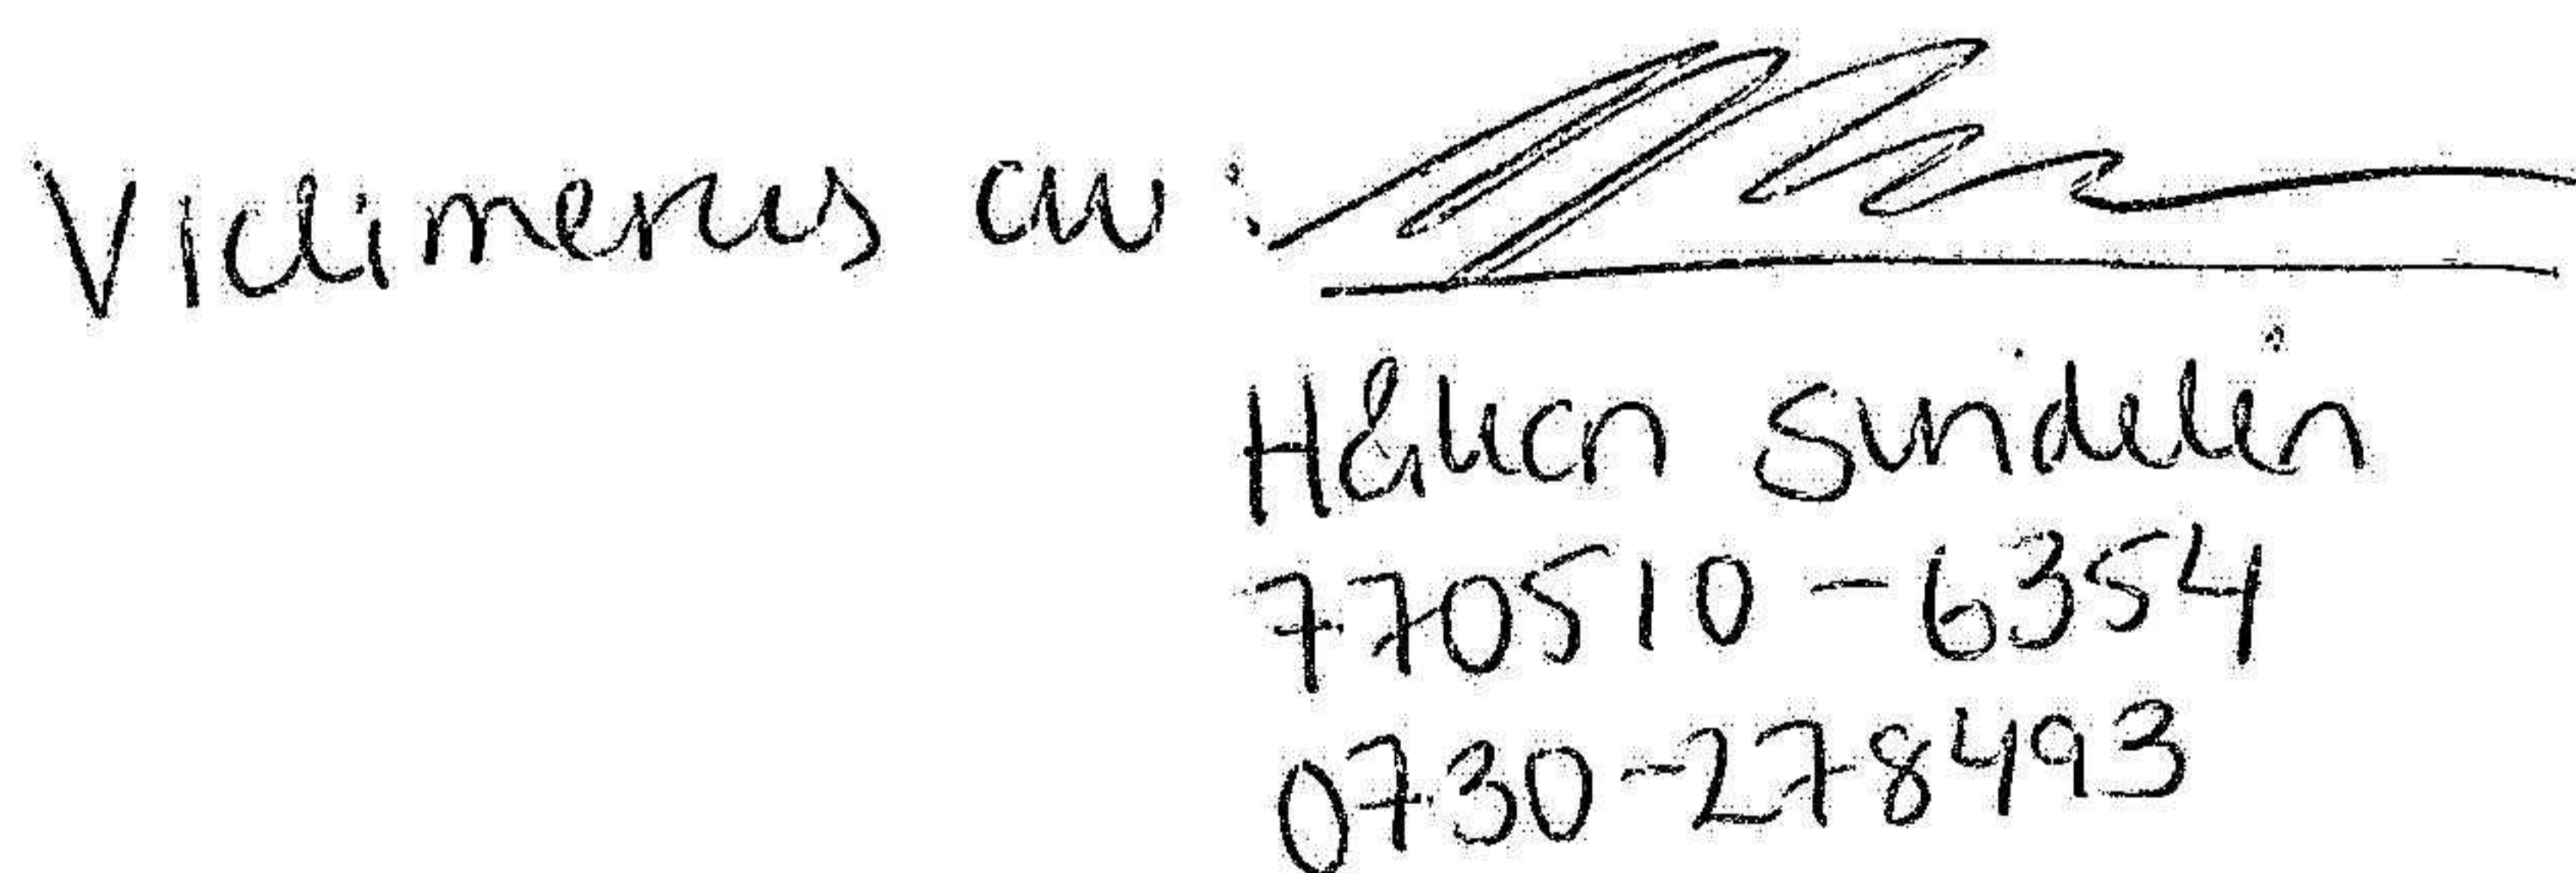 Vidimeras av:
Håkan Sundelin
770510-6354
0730-278493